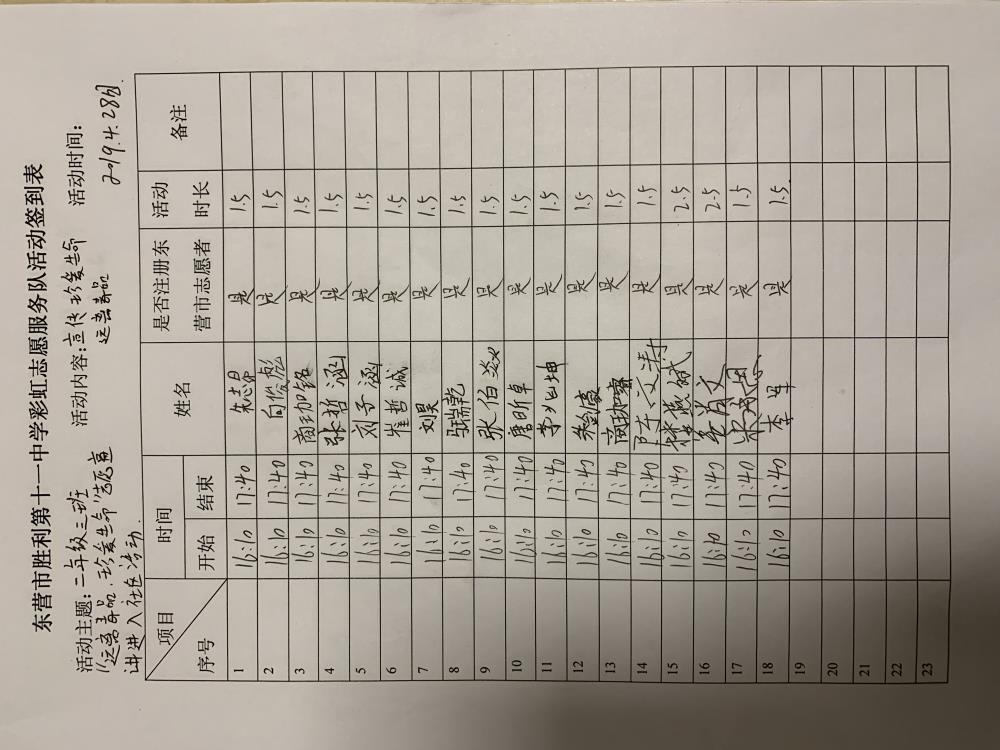 东营市胜利第十一中学彩虹志愿服务队活动签到表
活动主题：二年级三班 活动内容：宣传珍爱生命 活动时间：
"远离毒品、珍爱生命"志愿宣 远离毒品 2019.4.28日
讲进入社区活动.
项目 时间 姓名 是否注册东 活动 备注
序号 开始 结束 营市志愿者 时长
1 16:10 17:40 是 1.5
2 16:10 17:40 向俊彪 是 1.5
3 16:10 17:40 商珈铭 是 1.5
4 16:10 17:40 张哲涵 是 1.5
5 16:10 17:40 刘子涵 是 1.5
6 16:10 17:40 崔哲诚 是 1.5
7 16:10 17:40 刘昊 是 1.5
8 16:10 17:40 是 1.5
9 16:10 17:40 张伯焱 是 1.5
10 16:10 17:40 唐昕卓 是 1.5
11 16:10 17:40 李兆坤 是 1.5
12 16:10 17:40 是 1.5
13 16:10 17:40 是 1.5
14 16:10 17:40 是 1.5
15 16:10 17:40 是 2.5
16 16:10 17:40 是 2.5
17 16:10 17:40 是 1.5
18 16:10 17:40 是 1.5.
19
20
21
22
23